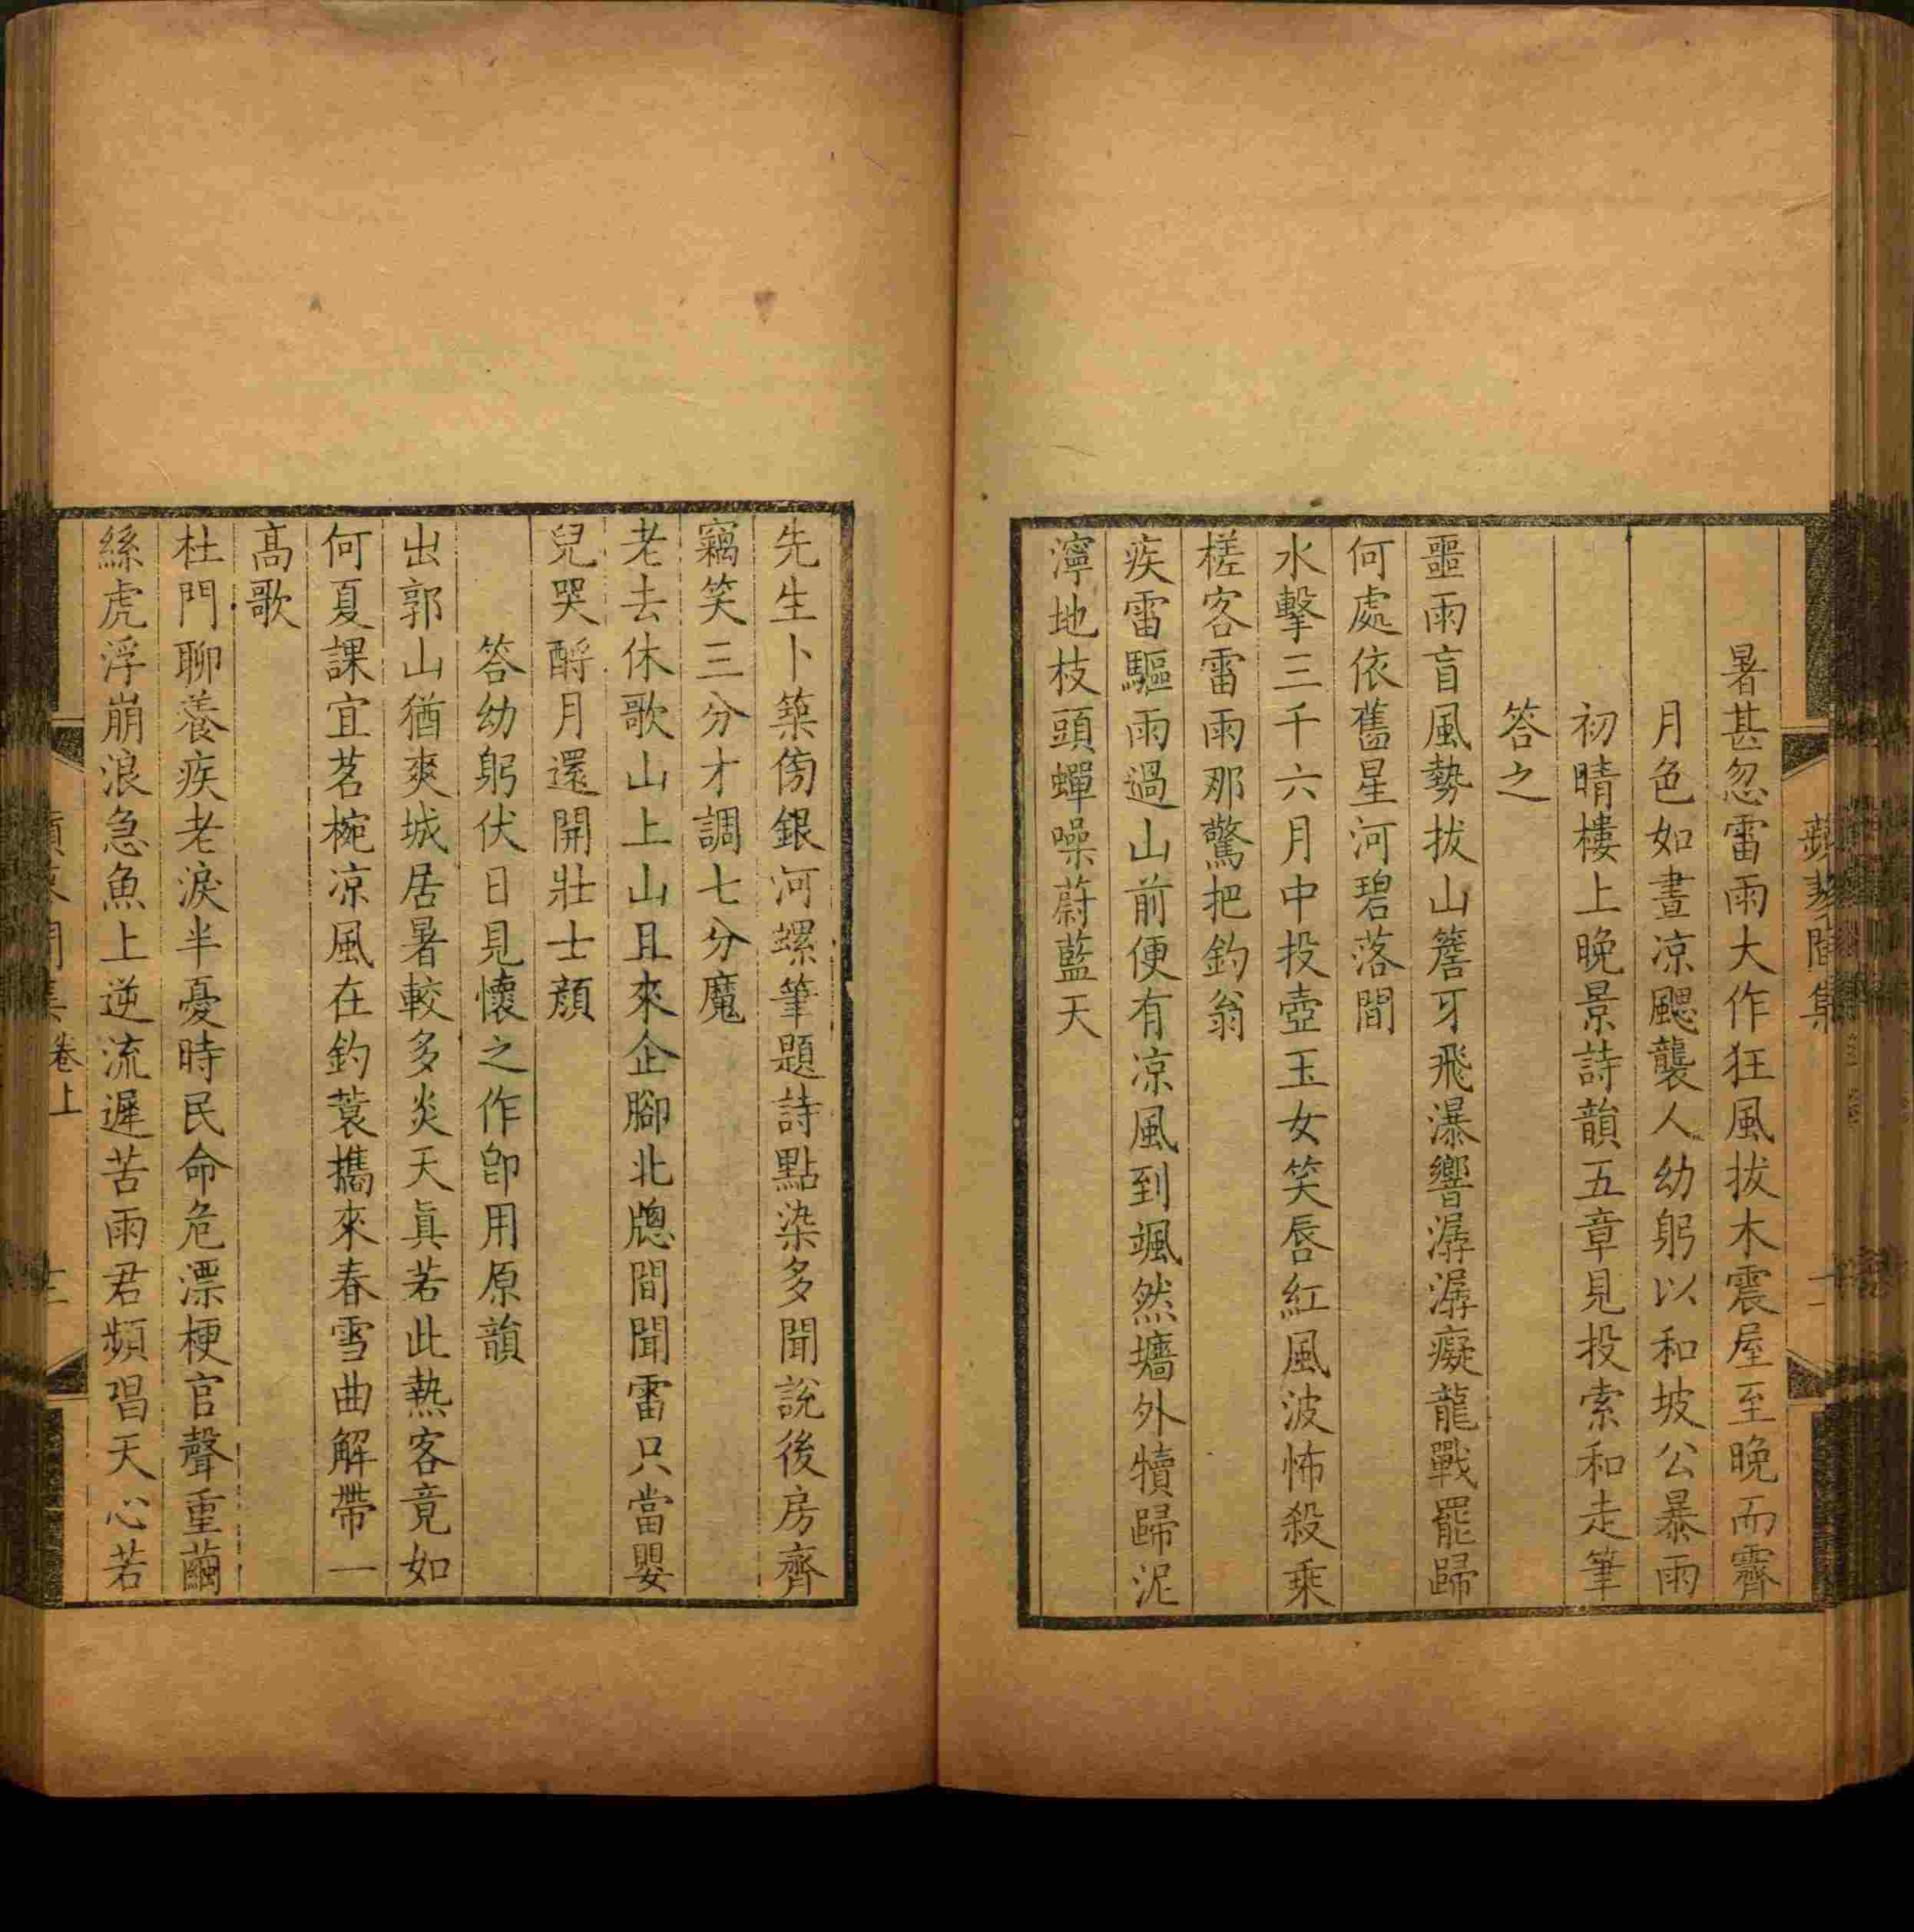 暑甚忽雷雨大作狂風拔木震屋至晚而霽
月色如晝凉颸襲人幼躬以和坡公暴雨
初晴樓上晚景詩韻五章見投索和走筆
答之
噩雨盲風勢拔山簷牙飛瀑響潺潺癡龍戰罷歸
何處依舊星河碧落間
水擊三千六月中投壺玉女笑唇紅風波怖殺乘
槎客雷雨那驚把釣翁
疾雷驅雨過山前便有凉風到颯然墻外犢歸泥
濘地枝頭蟬噪蔚藍天
先生卜築傍銀河螺筆題詩點染多聞說後房齊
竊笑三分才調七分魔
老去休歌山上山且來企腳北牕間聞雷只當嬰
兒哭酹月還開壯士顏
答幼躬伏日見懷之作卽用原韻
出郭山猶爽城居暑較多炎天眞若此熱客竟如
何夏課宜茗椀凉風在釣蓑攜來春雪曲解帶一
高歌
杜門聊養疾老淚半憂時民命危漂梗官聲重繭
絲虎浮崩浪急魚上逆流遲苦雨君頻唱天心若
卷上